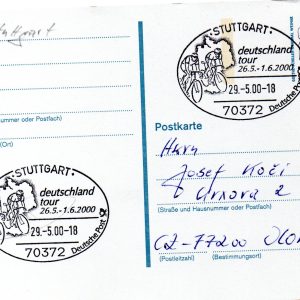 STUTTGART
deutschland
tour
26.5.-1.6.2000
29.-5.00-18
70372
Deutsche Post
ummer oder Postfach)
(Ort)
STUTTGART
deutschland
tour
26.5.-1.6.2000
29.-5.00-18
70372
Deutsche Post
Postkarte
Herrn
Josef Koči
Urxova 2
(Straße und Hausnummer oder Postfach)
CZ-77200 Olo
(Postleitzahl) (Bestimmungsort)